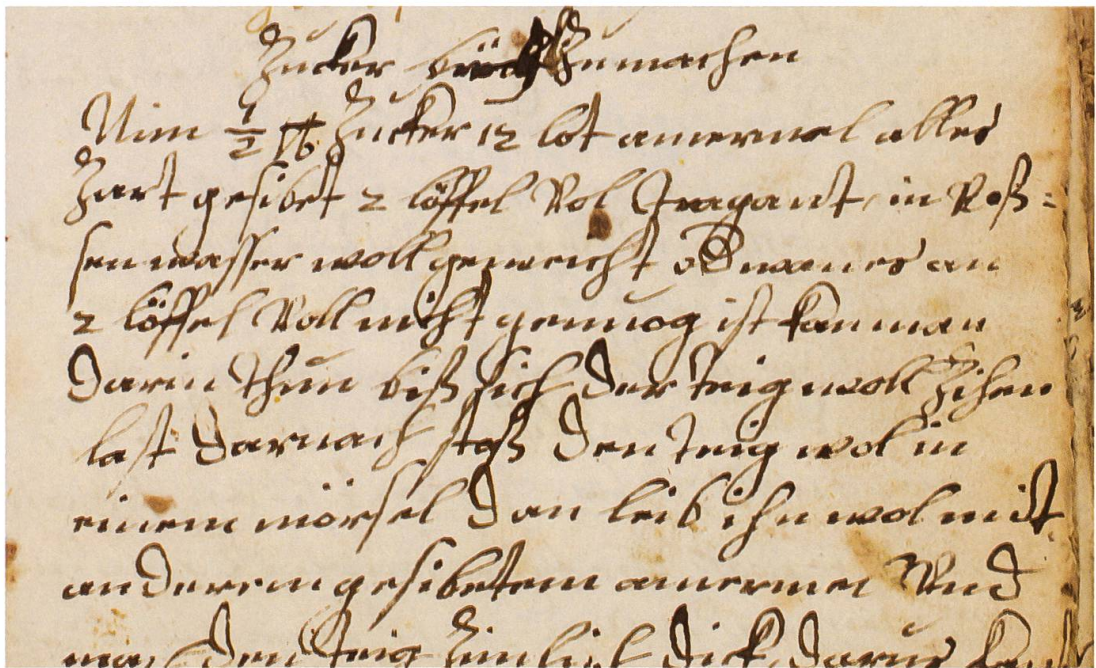 Zucker zumachen
Nim 1/2 ℔ Zucker 12 lot amermel alles
Zart gesibet 2 löffel Vol Tragant, in Roß=
sen wasser woll geweicht od wan es an
2 löffel Voll nicht genuog ist kan man
darin Thun biß sich der teig woll Zihen
last darnach stoß den teig wol in
einem mörsel dan leib ihn wol mit
anderem gesibetem amermel Vnd
den teig Zimlich dick, darus